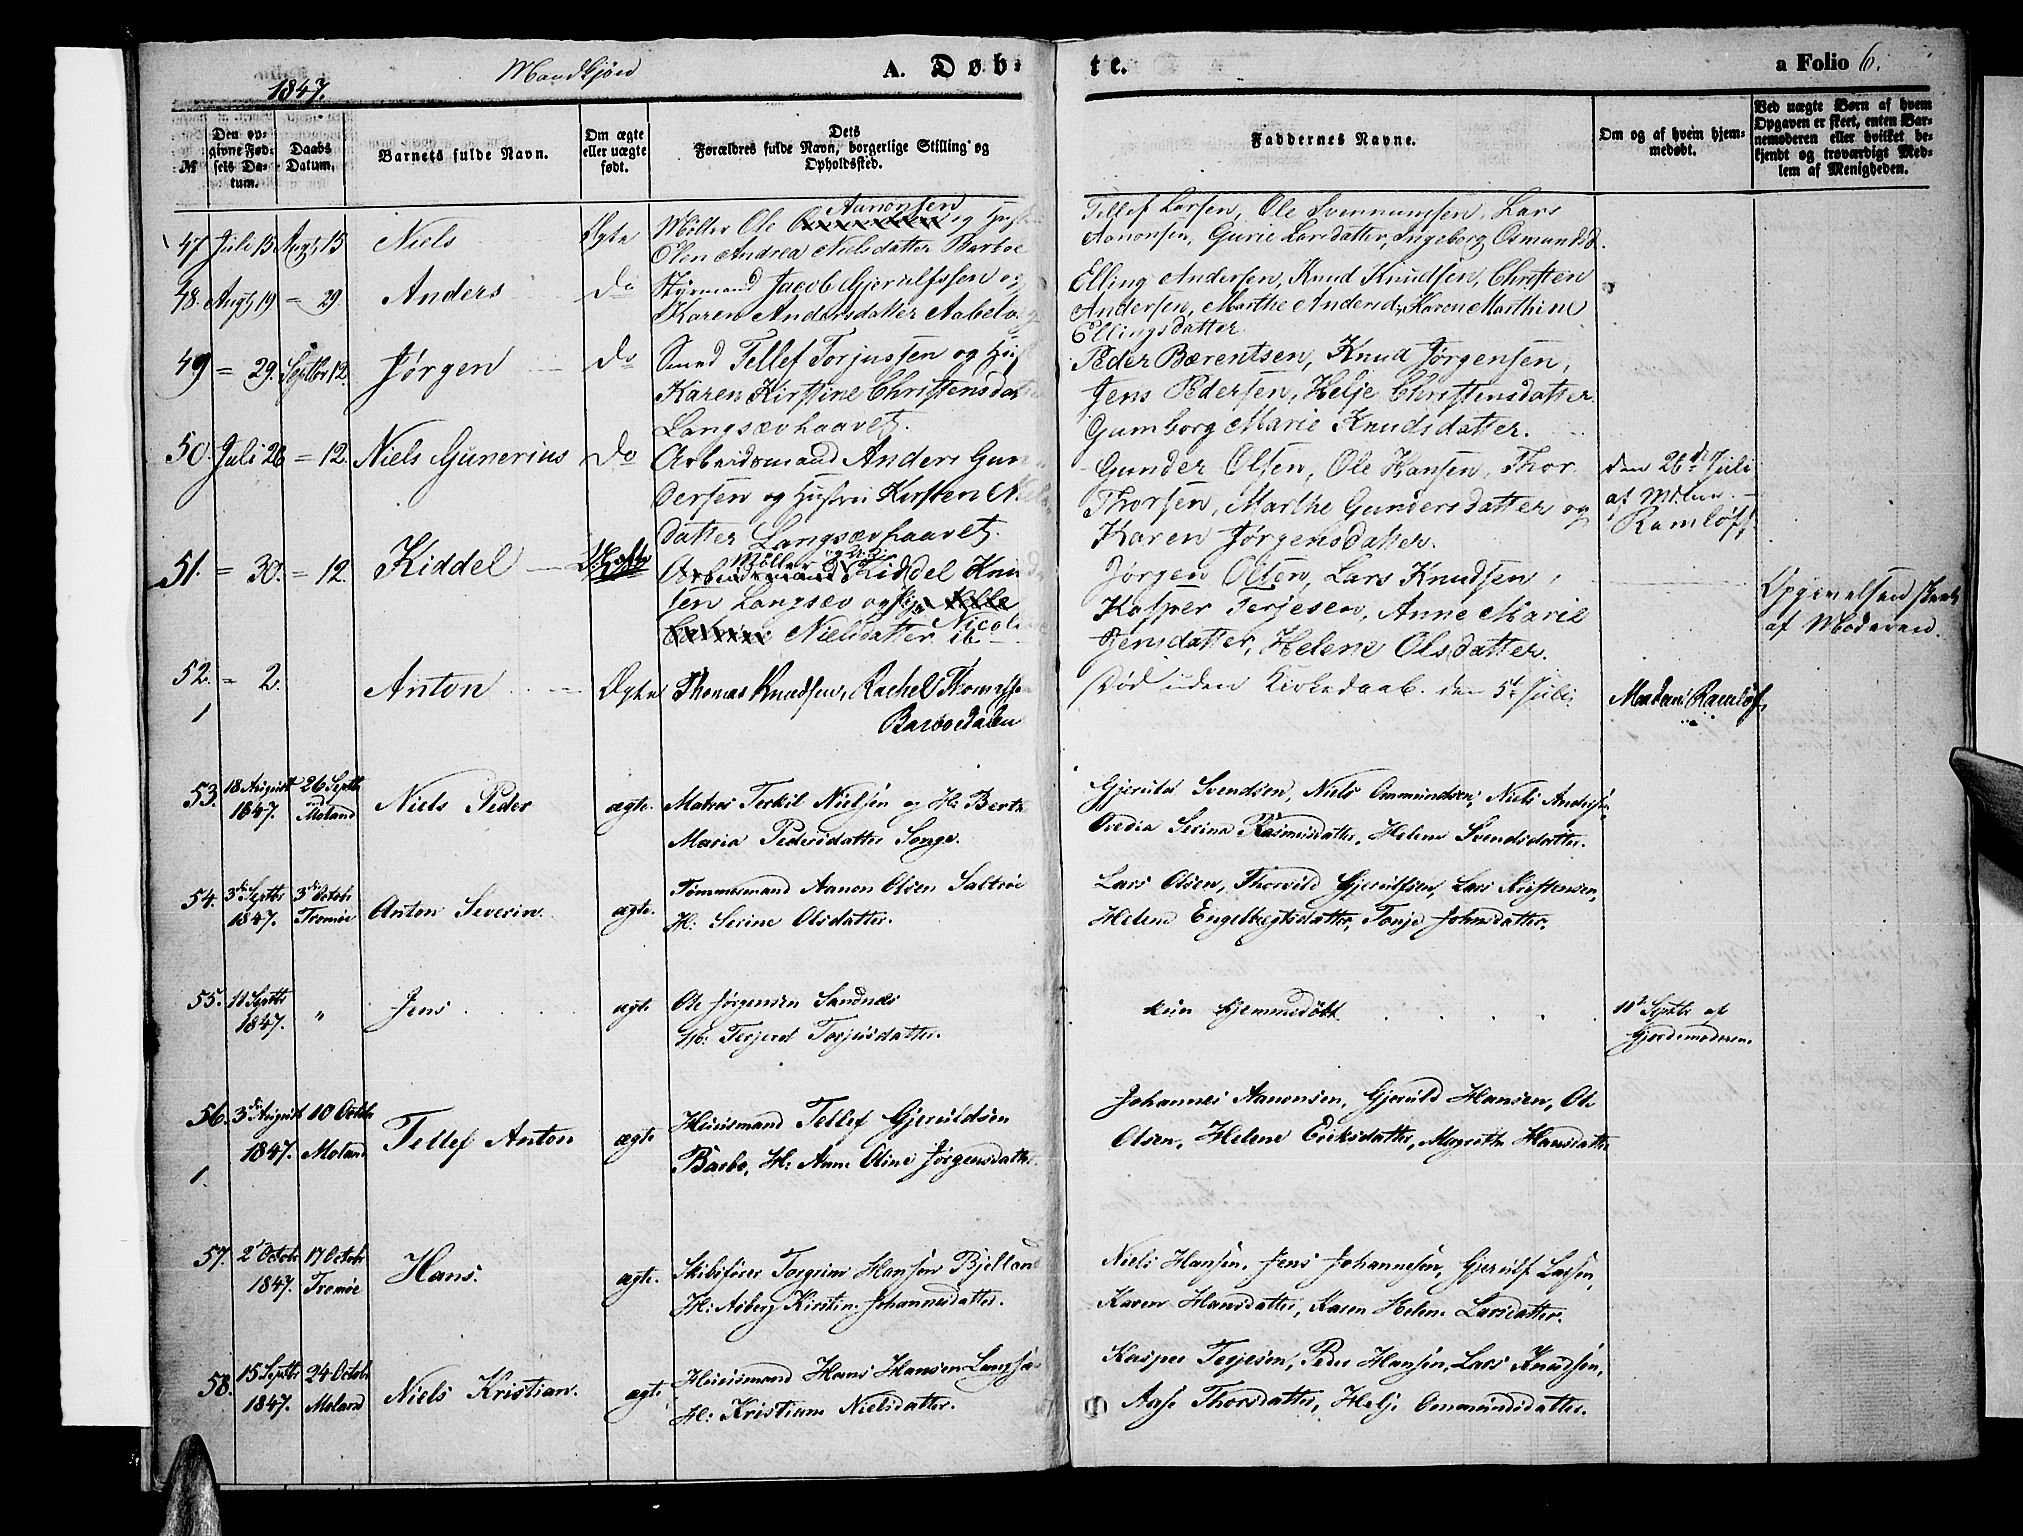 Mandkjøn
1847.
A. Døb-
te.
a Folio 6.
№
Den opgivne Fødsels Datum.
Daabs Datum.
Barnets fulde Navn.
Om ægte eller uægte født.
Dets Forældres fulde Navn, borgerlige Stilling og Opholdssted.
Faddernes Navne.
Om og af hvem hjemmedøbt.
Ved uægte Børn af hvem Opgaven er skeet, enten Barnemoderen eller hvilket bekjendt og troværdigt Medlem af Menigheden.
47 Juli 15. Augt 15 Niels Ægte Møller Ole Aanonsen og Hust
Elen Andrea Nielsdatter Barboe
Tellef Larsen, Ole Svennungsen, Lars
Aanonsen, Gurie Larsdatter, Ingeborg Osmundsd.
48. Augt 19 = 29. Anders Do Styrmand Jacob Gjerulfssen og
Karen Andersdatter
Elling Andersen, Knud Knudsen, Christen
Andersen, Marthe Andersd, Karen Marthine
Ellingsdatter
49 = 29. Septbr 12. Jørgen Do Smed Tellef Torjussen og Hust
Karen Kirstine Christensdat
Langsævhaavet.
Peder Bærentsen, Knud Jørgensen,
Jens Pedersen, Helje Christensdatter.
Gumborg Marie Knudsdatter.
50. Juli 26 = 12. Niels Gunerius Do Arbeidsmand Anders Gun
dersen og Hustru Kirsten Niels
datter Langsævhaavet.
Gunder Olsen, Ole Hansen, Thor
Thorsen, Marthe Gundersdatter og
Karen Jørgensdatter.
den 26de Juli
af Mdm
Ramløff
51. = 30. = 12. Kiddel Møller Kiddel Knud
sen Langsæv og Pige
Nielsdatter Nicoline ib
Jørgen Olsen, Lars Knudsen,
Kasper Terjesen, Anne Marie
Jensdatter, Helene Olsdatter.
Opgivelsen skeet
af Moderen.
52. = 2. Anton Ægte Thomas Knudsen, Rachel
Barboedalen
Død uden Kirkedaab. den 5te Juli
Madam Ramløf
1
53. 18 August 26 Septbr
1847. Moland Niels Peder ægte. Matros Terkil Nielsen og H: Berth
Maria Pedersdatter Songe.
Gjeruld Svendsen, Niels Ommundsen, Niels Anders
Ovedia Serine Rasmusdatter, Helene Svendsdatter.
54. 3die Septbr 3die Octobr
1847. Tromøe Anton Severin ægte. Tømmermand Aanon Olsen Saltrøe
H: Serine Olsdatter.
Lars Olsen, Thorvild Gjerulfsen, Lars Kristensen,
Helene Engelbregtsdatter, Tonje Johnsdatter.
55. 11 Septbr
1847. " Jens ægte Ole Jørgensen Sandnes
H: Terjerd Torjusdatter.
kun hjemmedøbt
11te Septbr af
Gjordemoderen
56. 3die August 10 Octbr
1847. Moland Tellef Anton ægte Huusmand Tellef Gjeruldsen
Barbo, H: Anne Oline Jørgensdatter.
Johannes Aanonsen, Gjeruld Hansen, Ole
Olsen, Helene Eriksdatter, Margrethe Hansdatter
1.
57. 2 Octobr 17 Octobr
1847. Tromøe Hans. ægte. Skibsfører Torgrim Hansen Bjelland
H: Asberg Kirstine Johannesdatter.
Niels Hansen, Jens Johannesen, Gjerulf Larsen,
Karen Hansdatter, Karen Helene Larsdatter.
58. 15 Septbr 24 Octobr
1847. Moland Niels Kristian. ægte Huusmand Hans Hansen Langsæ
H: Kristiane Nielsdatter.
Kasper Terjesen, Peder Hansen, Lars Knudsen,
Aase Thorsdatter, Helje Ommundsdatter.